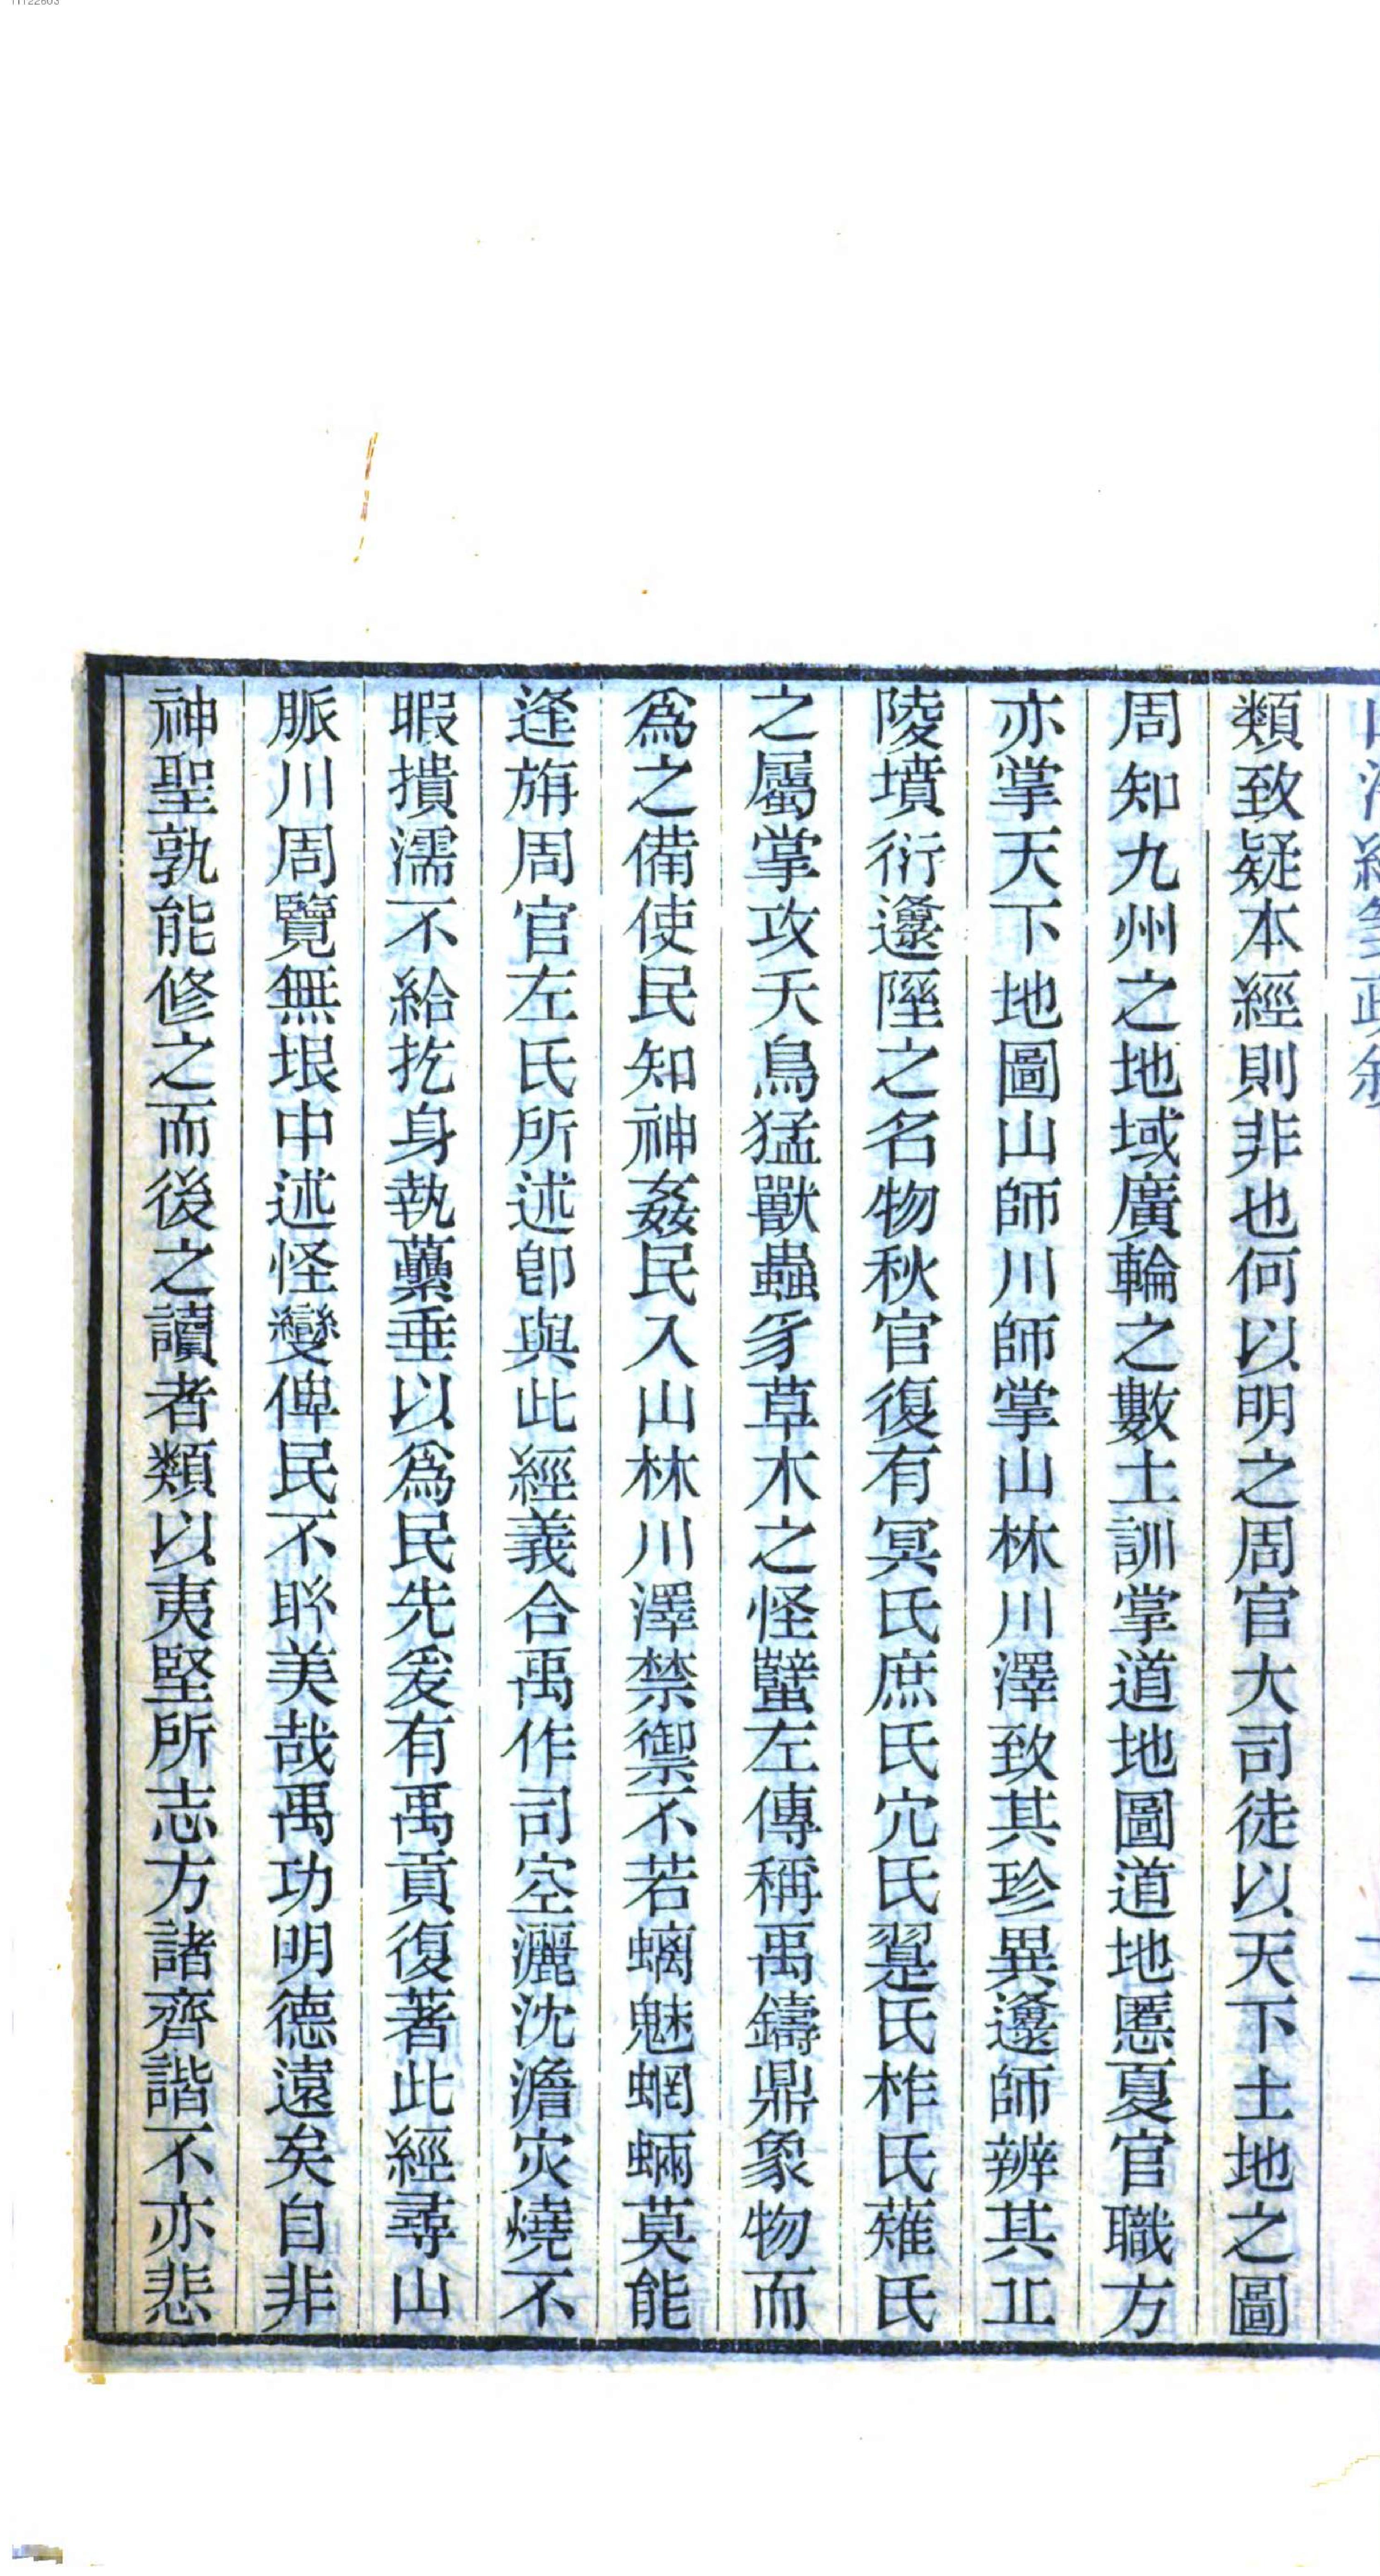 類致疑本經則非也何以明之周官大司徒以天下土地之圖
周知九州之地域廣輪之數土訓掌道地圖道地慝夏官職方
亦掌天下地圖山師川師掌山林川澤致其珍異邍師辨其丘
陵墳衍邍隰之名物秋官復有冥氏庶氏穴氏翨氏柞氏薙氏
之屬掌攻夭鳥猛獸蟲豸草木之怪蠥左傳稱禹鑄鼎象物而
為之備使民知神姦民入山林川澤禁禦不若螭魅蝄蜽莫能
逢旃周官左氏所述卽與此經義合禹作司空灑沈澹災燒不
暇撌濡不給扢身執虆垂以為民先爰有禹貢復著此經尋山
脈川周覽無垠中述怪變俾民不眯美哉禹功明德遠矣自非
神聖孰能修之而後之讀者類以夷堅所志方諸齊諧不亦悲